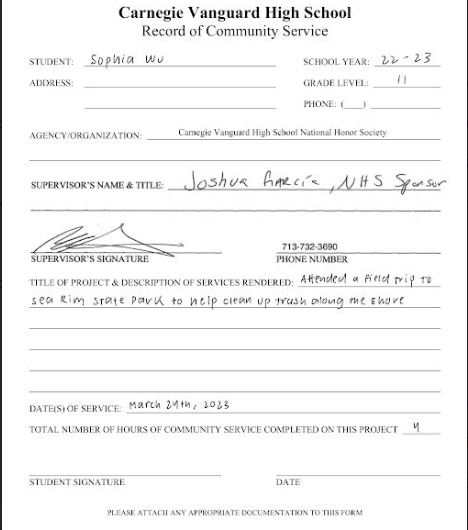 Carnegie Vanguard High School
Record of Community Service
STUDENT: Sophia Wu SCHOOL YEAR: 22-23
ADDRESS: GRADE LEVEL: 11
PHONE: (__)
AGENCY/ORGANIZATION: Carnegie Vanguard High School National Honor Society
SUPERVISOR'S NAME & TITLE: Joshua Garcia, NHS Sponsor
713-732-3690
SUPERVISOR'S SIGNATURE PHONE NUMBER
TITLE OF PROJECT & DESCRIPTION OF SERVICES RENDERED: Attended a field trip to
sea Rim State Park to help clean up trash along the shore
DATE(S) OF SERVICE: March 24th, 2023
TOTAL NUMBER OF HOURS OF COMMUNITY SERVICE COMPLETED ON THIS PROJECT 4
STUDENT SIGNATURE DATE
PLEASE ATTACH ANY APPROPRIATE DOCUMENTATION TO THIS FORM